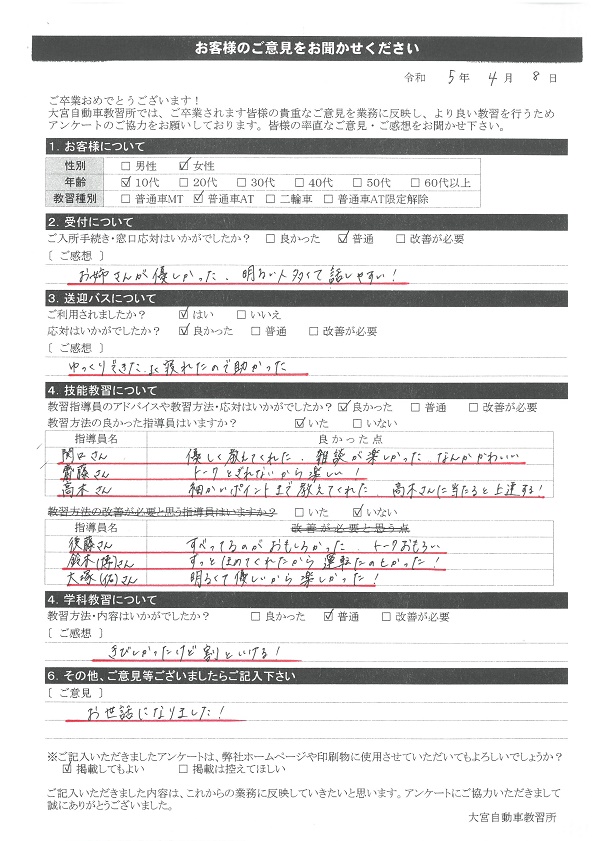 お客様のご意見をお聞かせください
令和 5年 4月 8日
ご卒業おめでとうございます！
大宮自動車教習所では、ご卒業されます皆様の貴重なご意見を業務に反映し、より良い教習を行うため
アンケートのご協力をお願いしております。皆様の率直なご意見・ご感想をお聞かせ下さい。
1. お客様について
性別 □ 男性 ☑ 女性
年齢 ☑ 10代 □ 20代 □ 30代 □ 40代 □ 50代 □ 60代以上
教習種別 □ 普通車MT ☑ 普通車AT □ 二輪車 □ 普通車AT限定解除
2. 受付について
ご入所手続き・窓口応対はいかがでしたか？ □ 良かった ☑ 普通 □ 改善が必要
〔 ご感想 〕
お姉さんが優しかった、明るい人多くて話しやすい！
3. 送迎バスについて
ご利用されましたか？ ☑ はい □ いいえ
応対はいかがでしたか？ ☑ 良かった □ 普通 □ 改善が必要
〔 ご感想 〕
ゆっくりできたし寝れたので助かった
4. 技能教習について
教習指導員のアドバイスや教習方法・応対はいかがでしたか？ ☑ 良かった □ 普通 □ 改善が必要
教習方法の良かった指導員はいますか？ ☑ いた □ いない
指導員名 良かった点
関口さん 優しく教えてくれた、雑談が楽しかった なんかかわいい
齋藤さん トークとぎれないから楽しい！
高木さん 細かいポイントまで教えてくれた、高木さんに当たると上達する！
教習方法の改善が必要と思う指導員はいますか？ □ いた ☑ いない
指導員名 改善が必要と思う点
後藤さん すべってるのがおもしろかった トークおもろい
鈴木(博)さん ずっとほめてくれたから運転たのしかった！
大塚(佑)さん 明るくて優しいから楽しかった！
4. 学科教習について
教習方法・内容はいかがでしたか？ □ 良かった ☑ 普通 □ 改善が必要
〔 ご感想 〕
きびしかったけど割といける！
6. その他、ご意見等ございましたらご記入下さい
〔 ご意見 〕
お世話になりました！
※ご記入いただきましたアンケートは、弊社ホームページや印刷物に使用させていただいてもよろしいでしょうか？
☑ 掲載してもよい □ 掲載は控えてほしい
ご記入いただきました内容は、これからの業務に反映していきたいと思います。アンケートにご協力いただきまして
誠にありがとうございました。
大宮自動車教習所